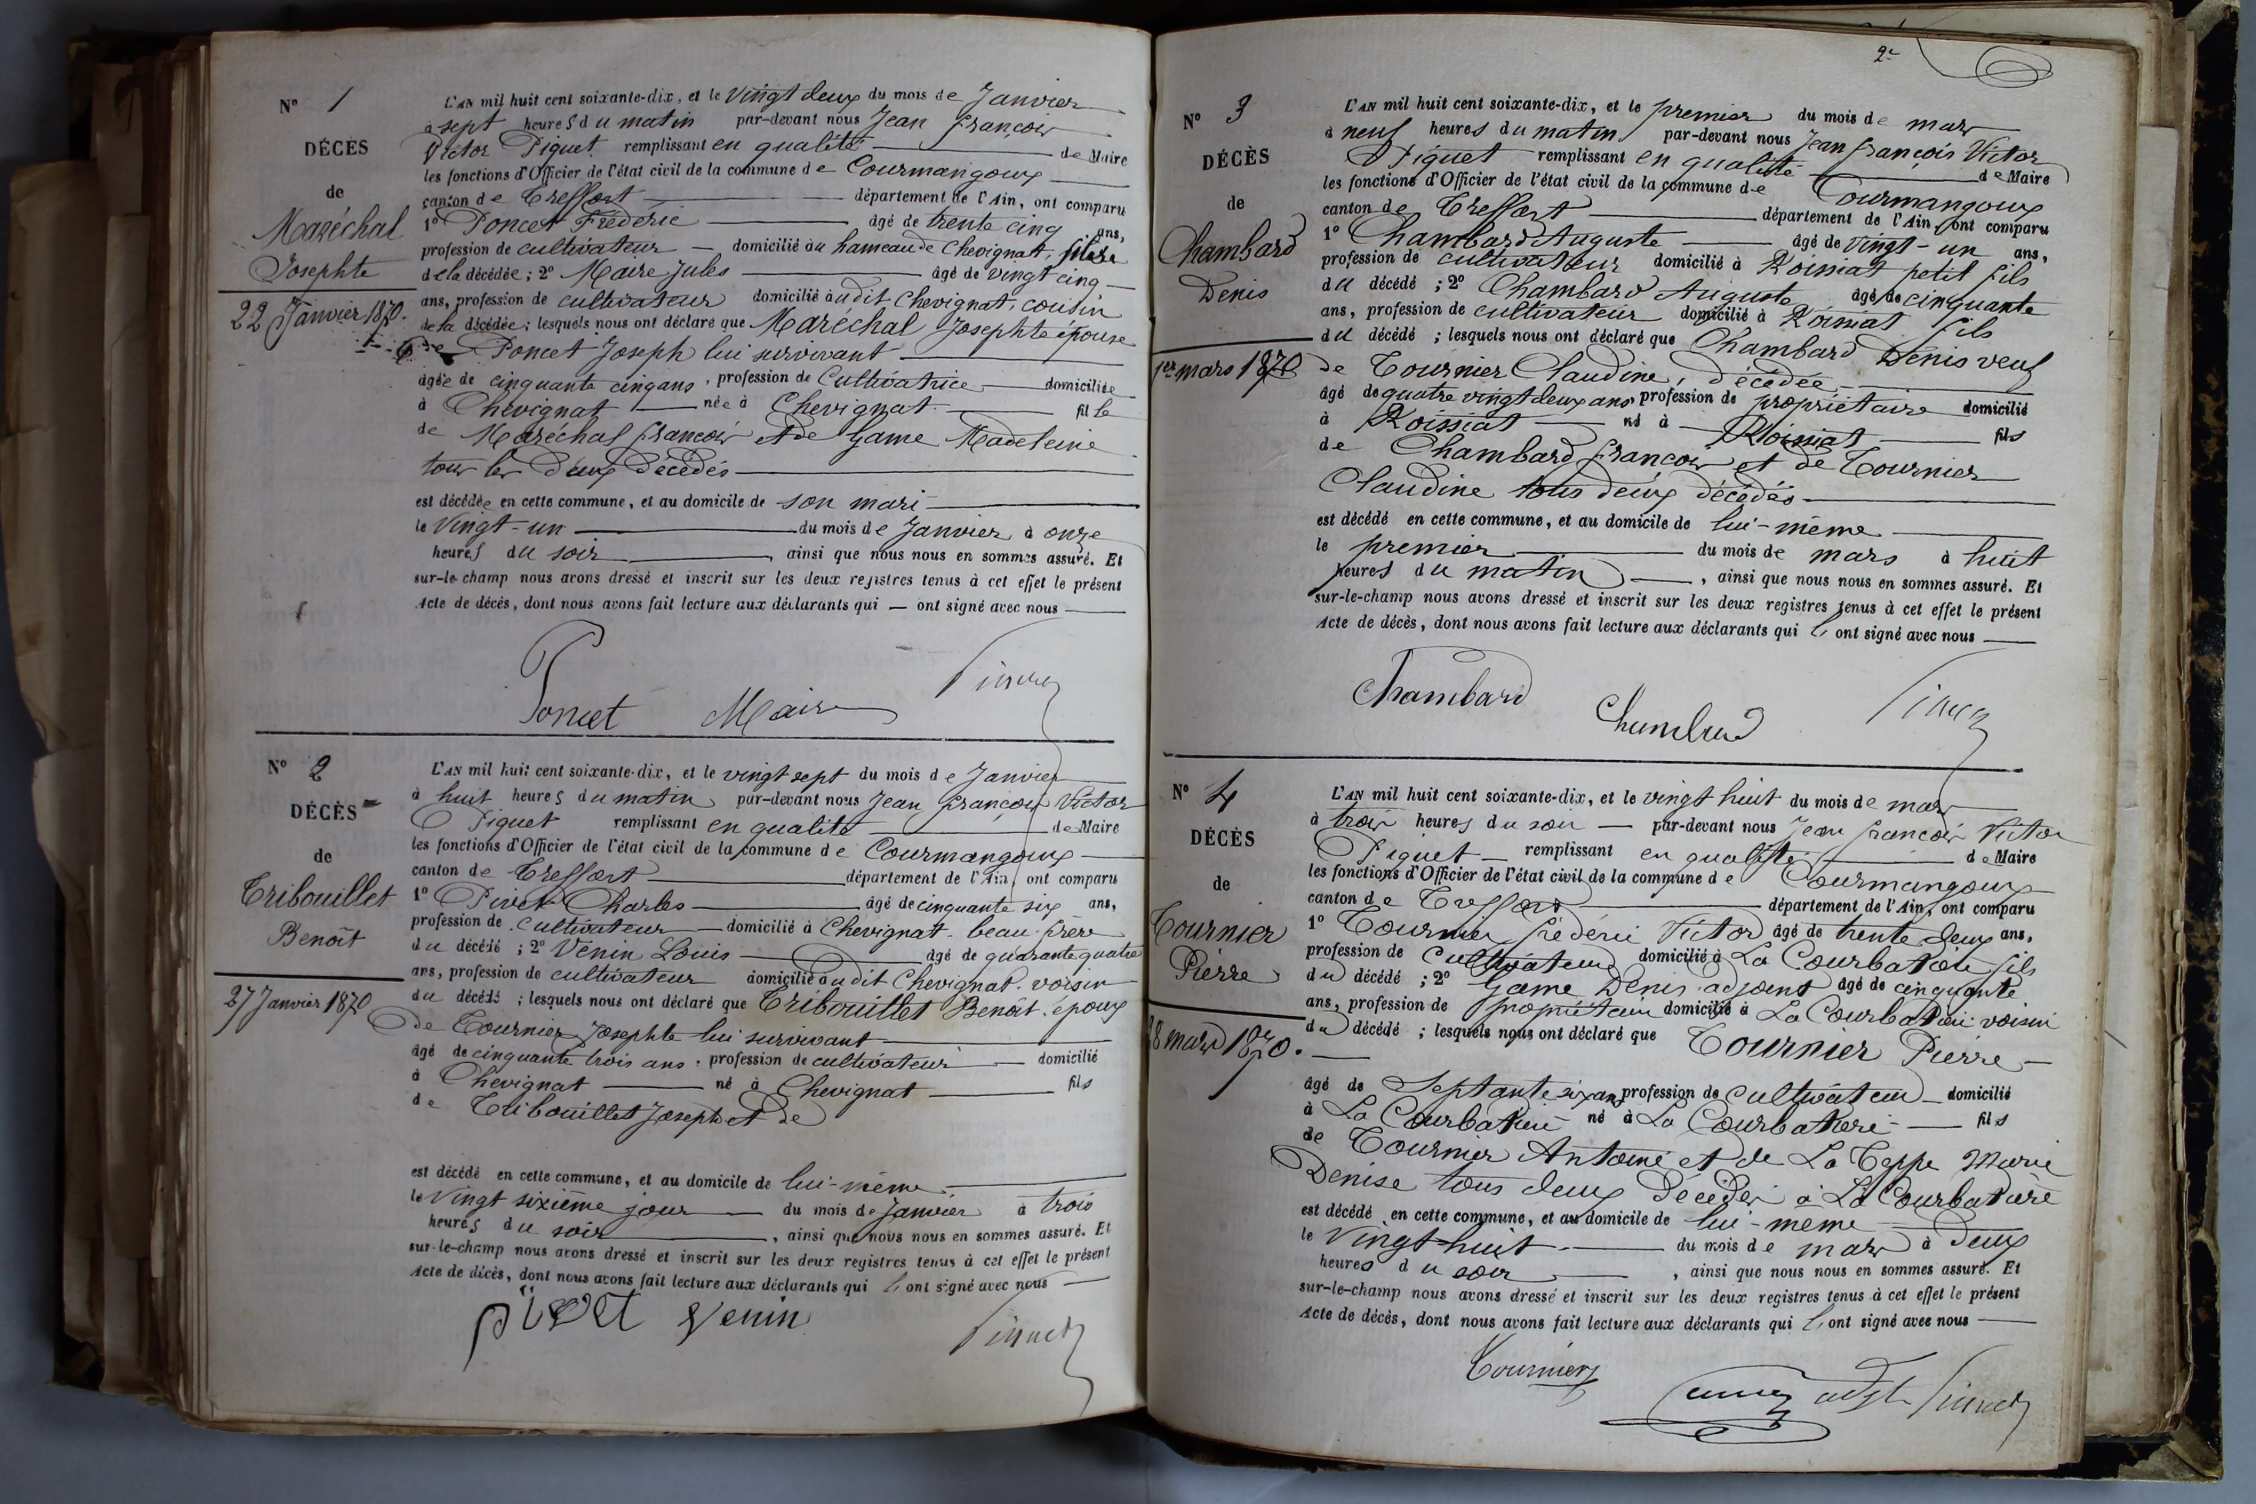 Nº 1
DÉCÈS
de
Maréchal
Josephte
22 Janvier 1870.
L'AN mil huit cent soixante-dix, et le Vingt deux du mois de Janvier
à sept heures du matin par-devant nous Jean françois
Victor Piquet remplissant en qualité de Maire
les fonctions d'Officier de l'état civil de la commune de Courmangoux
canton de Treffort département de l'Ain, ont comparu
1º Poncet Frédéric âgé de trente cinq ans,
profession de cultivateur domicilié au hameau de Chevignat,
de la décédée; 2º Maire Jules âgé de vingt cinq
ans, profession de cultivateur domicilié audit Chevignat, cousin
de la décédée; lesquels nous ont déclaré que Maréchal Josephte épouse
de Poncet Joseph lui survivant
âgée de cinquante cinq ans, profession de Cultivatrice domiciliée
à Chevignat née à Chevignat fille
de Maréchal françois et de Game Madeleine
tous les deux décédés
est décédée en cette commune, et au domicile de son mari
le Vingt-un du mois de Janvier à onze
heures du soir, ainsi que nous nous en sommes assuré. Et
sur-le-champ nous avons dressé et inscrit sur les deux registres tenus à cet effet le présent
Acte de décès, dont nous avons fait lecture aux déclarants qui — ont signé avec nous
Poncet Maire Piquet
Nº 2
DÉCÈS
de
Tribouillet
Benoît
27 Janvier 1870
L'AN mil huit cent soixante-dix, et le vingt sept du mois de Janvier
à huit heures du matin par-devant nous Jean françois Victor
Piquet remplissant en qualité de Maire
les fonctions d'Officier de l'état civil de la commune de Courmangoux
canton de Treffort département de l'Ain, ont comparu
1º Pivet Charles âgé de cinquante six ans,
profession de cultivateur domicilié à Chevignat beau-frère
du décédé; 2º Venin Louis âgé de quarante quatre
ans, profession de cultivateur domicilié audit Chevignat voisin
du décédé; lesquels nous ont déclaré que Tribouillet Benoît époux
de Tournier Josephte lui survivant
âgé de cinquante trois ans, profession de cultivateur domicilié
à Chevignat né à Chevignat fils
de Tribouillet Joseph et de
est décédé en cette commune, et au domicile de lui-même
le Vingt sixième jour du mois de Janvier à trois
heures du soir, ainsi que nous nous en sommes assuré. Et
sur-le-champ nous avons dressé et inscrit sur les deux registres tenus à cet effet le présent
Acte de décès, dont nous avons fait lecture aux déclarants qui ont signé avec nous
pivet Venin Piquet
2
Nº 3
DÉCÈS
de
Chambard
Denis
1er mars 1870
L'AN mil huit cent soixante-dix, et le premier du mois de mars
à neuf heures du matin par-devant nous Jean françois Victor
Piquet remplissant en qualité de Maire
les fonctions d'Officier de l'état civil de la commune de Courmangoux
canton de Treffort département de l'Ain, ont comparu
1º Chambard Auguste âgé de vingt-un ans,
profession de cultivateur domicilié à Roissiat petit fils
du décédé; 2º Chambard Auguste âgé de cinquante
ans, profession de cultivateur domicilié à Roissiat fils
du décédé; lesquels nous ont déclaré que Chambard Denis veuf
de Tournier Claudine, décédée
âgé de quatre vingt deux ans profession de propriétaire domicilié
à Roissiat né à Roissiat fils
de Chambard françois et de Tournier
Claudine tous deux décédés
est décédé en cette commune, et au domicile de lui-même
le premier du mois de mars à huit
heures du matin, ainsi que nous nous en sommes assuré. Et
sur-le-champ nous avons dressé et inscrit sur les deux registres tenus à cet effet le présent
Acte de décès, dont nous avons fait lecture aux déclarants qui ont signé avec nous
Chambard Chambard Piquet
Nº 4
DÉCÈS
de
Tournier
Pierre
28 mars 1870.
L'AN mil huit cent soixante-dix, et le vingt huit du mois de mars
à trois heures du soir par-devant nous Jean françois Victor
Piquet remplissant en qualité de Maire
les fonctions d'Officier de l'état civil de la commune de Courmangoux
canton de Treffort département de l'Ain, ont comparu
1º Tournier frédéric Victor âgé de trente deux ans,
profession de Cultivateur domicilié à La Courbatière fils
du décédé; 2º Game Denis adjoint âgé de cinquante
ans, profession de propriétaire domicilié à La Courbatière voisin
du décédé; lesquels nous ont déclaré que Tournier Pierre
âgé de Septante six ans profession de Cultivateur domicilié
à La Courbatière né à La Courbatière fils
de Tournier Antoine et de La Teppe Marie
Denise tous deux décédés à La Courbatière
est décédé en cette commune, et au domicile de lui-même
le Vingt-huit du mois de mars à deux
heures du soir, ainsi que nous nous en sommes assuré. Et
sur-le-champ nous avons dressé et inscrit sur les deux registres tenus à cet effet le présent
Acte de décès, dont nous avons fait lecture aux déclarants qui ont signé avec nous
Tournier adjt Piquet